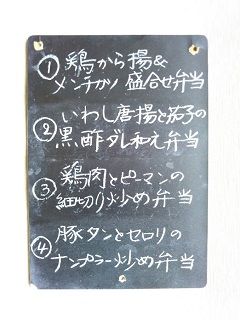 ① 鶏から揚&
メンチカツ 盛合せ弁当
② いわし唐揚と茄子の
黒酢ダレ和え弁当
③ 鶏肉とピーマンの
細切り炒め弁当
④ 豚タンとセロリの
ナンプラー炒め弁当